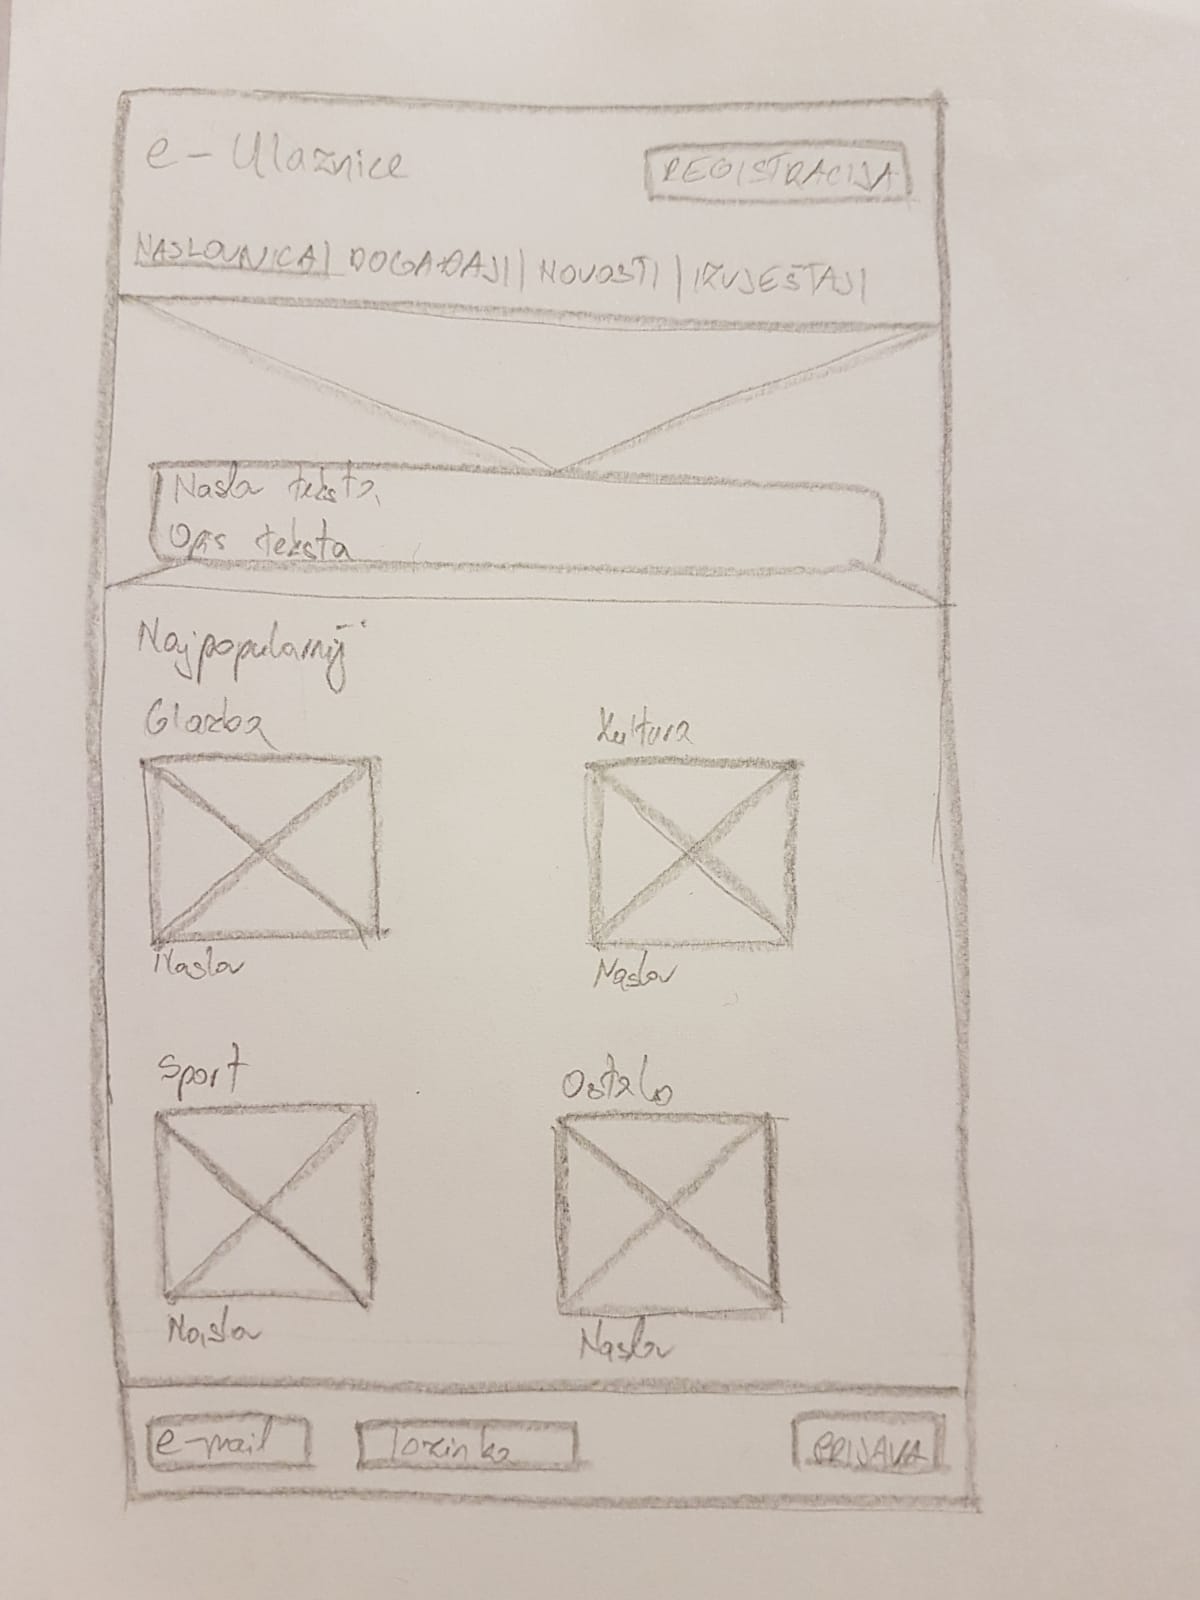 e-Ulaznice
REGISTRACIJA
NASLOVNICA | DOGAĐAJI | NOVOSTI | IZVJEŠTAJI
Naslov teksta
Opis teksta
Najpopularnij
Glazba
Kultura
Naslov
Naslov
Sport
Ostalo
Naslov
Naslov
e-mail
lozinka
PRIJAVA